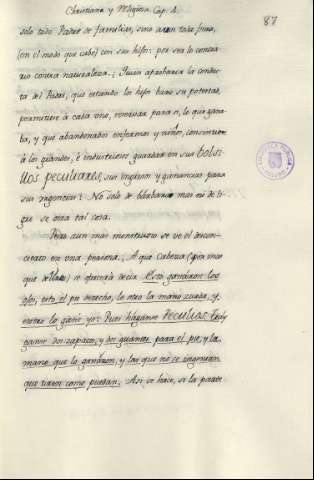 Christiana y Religiosa Cap. 4.
87
solo todo Padre de familias, sino aun toda fiera,
(en el modo que cabe) con sus hijos: por ser lo contra-
rio contra naturaleza. ¿Quien aprobara la conduc-
ta del Padre, que estando los hijos baxo su potestad,
permitiera á cada uno, reservar para si, lo que gana-
ba, y que abandonados enfermos y niños, consintiera
á los grandes, é industriosos guardar en sus bolsi-
llos peculiares, sus ingresos y ganancias para
sus urgencias? No solo de Barbaros mas ni de ti-
gre se oira tal cosa.
Pero aun mas monstruoso se ve el descon-
cierto en una persona. ¿A que Cabeza (por mas
que delire) se ofreceria decir: Esto ganaron los
ojos, esto el pie derecho, lo otro la mano zurda, y
esotro lo gané yo: Pues haganse Peculios,
ganse dos zapatos, y dos guantes para el pie, y la
mano que lo ganaron, y los que no se ingenian
que tiren como puedan. Asi se hace, si la parti-